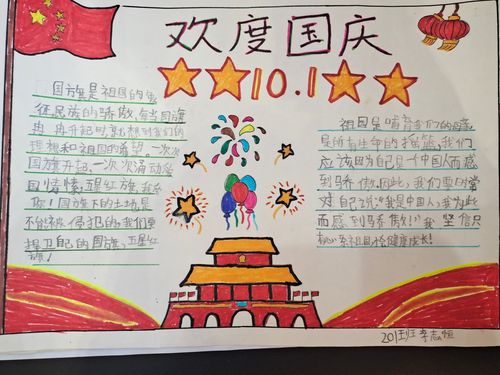 欢度国庆
10.1
国旗是祖国的象
征民族的骄傲,每当国旗
冉冉升起时,就想到我们的
理想和祖国的希望。一次次
国旗升起,一次次涌动爱
国情愫,五星红旗,我爱
你!国旗下的土地是
不能被侵犯的,我们要
捍卫自己的国旗,五星红
旗!
祖国是哺育我们的母亲,
是所有生命的摇篮,我们
应该因为自己是一个中国人而感
到骄傲。因此,我们要时常
对自己说:“我是中国人,我为此
而感到骄傲!”我坚信只
祖国会健康成长!
201班 李志恒